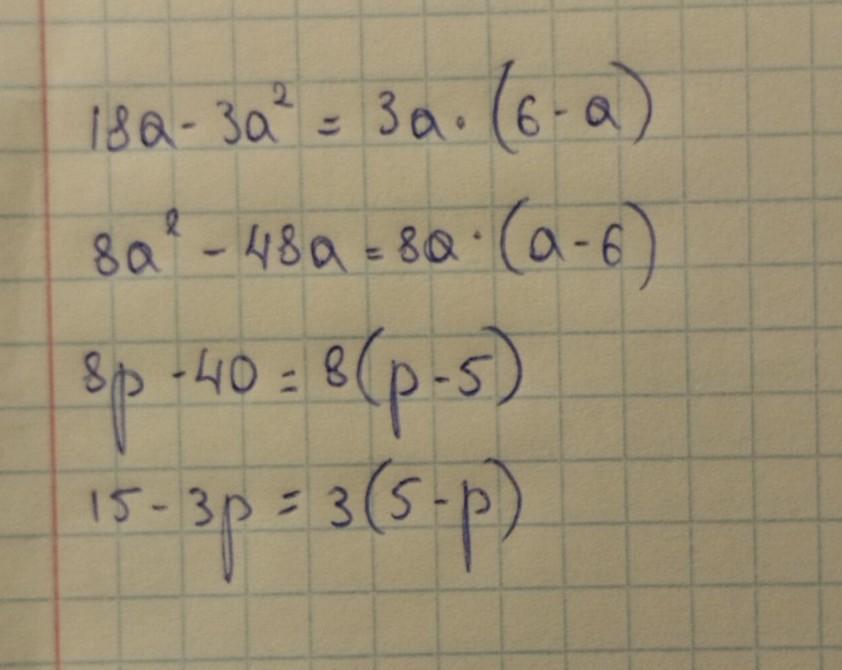 18a - 3a² = 3a · (6 - a)
8a² - 48a = 8a · (a - 6)
8p - 40 = 8(p - 5)
15 - 3p = 3(5 - p)